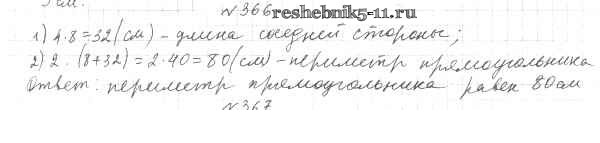 см.
№366
reshebnik5-11.ru
1) 4·8=32(см) – длина соседней стороны;
2) 2·(8+32)=2·40=80(см) – периметр прямоугольника
Ответ: периметр прямоугольника равен 80см
№367